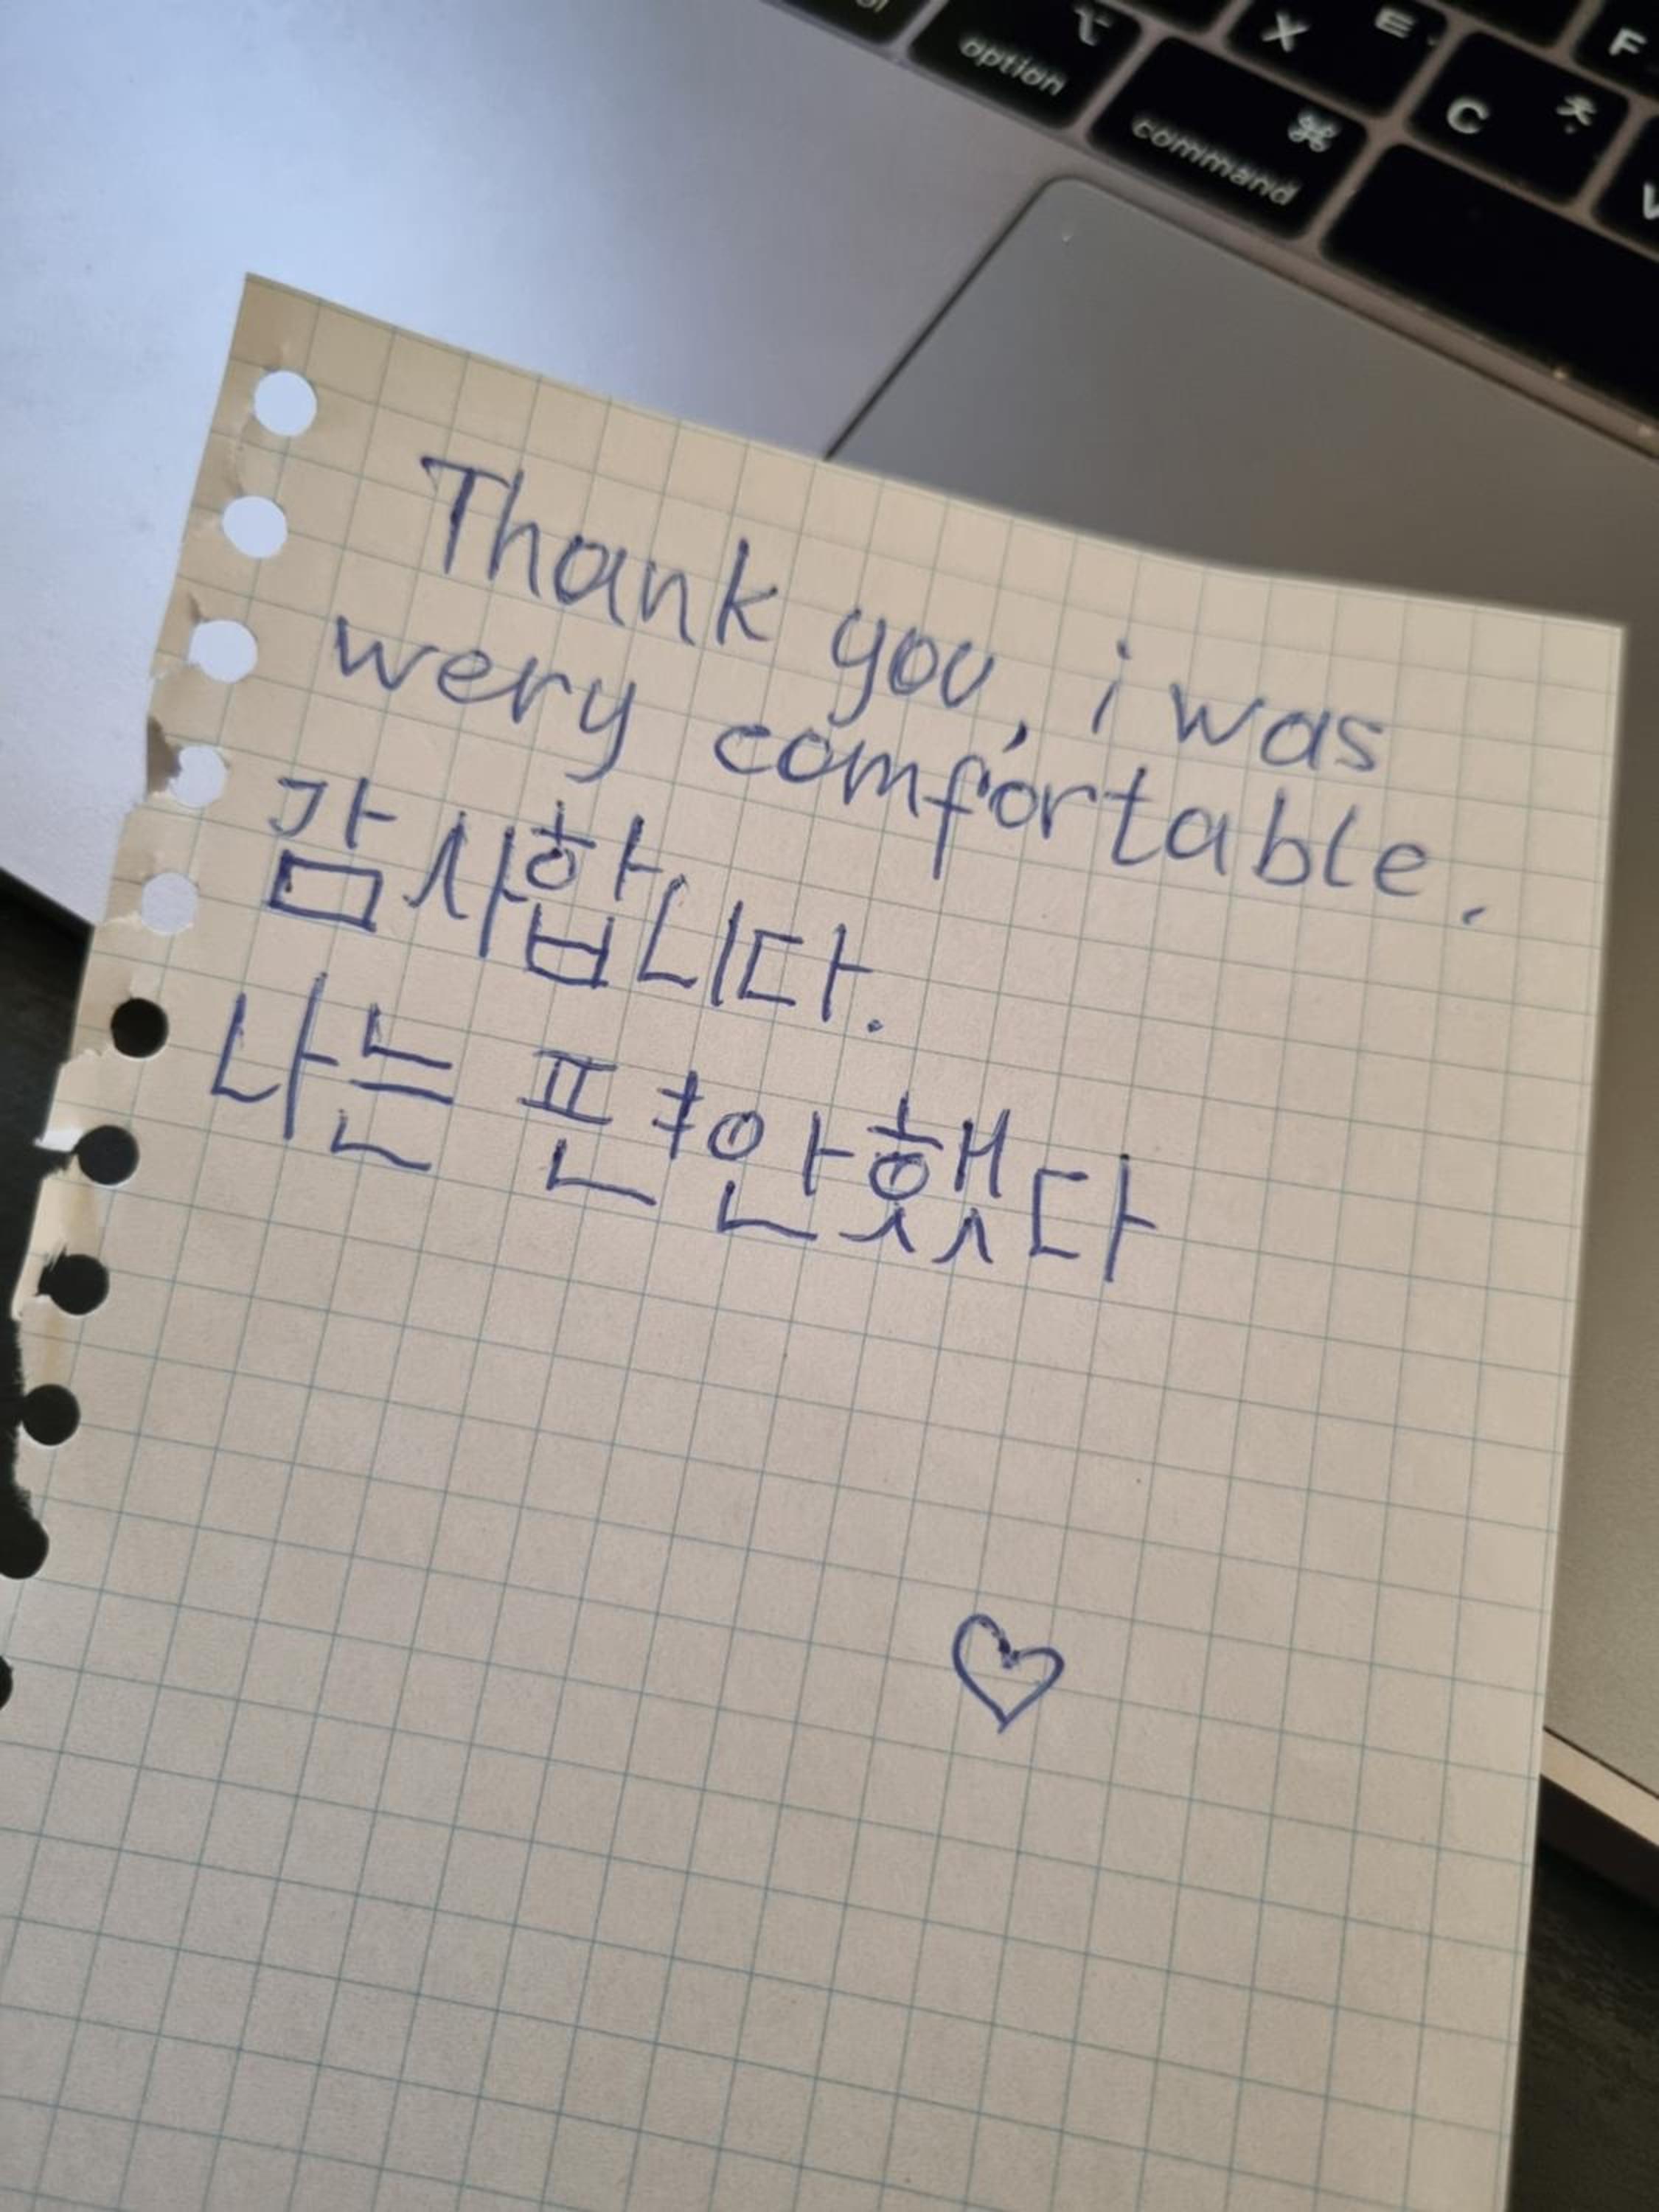 option
⌥
X ㅌ
F
command
⌘
C ㅊ
Thank you, i was
wery comfortable.
감사합니다.
나는 편안했다
♡